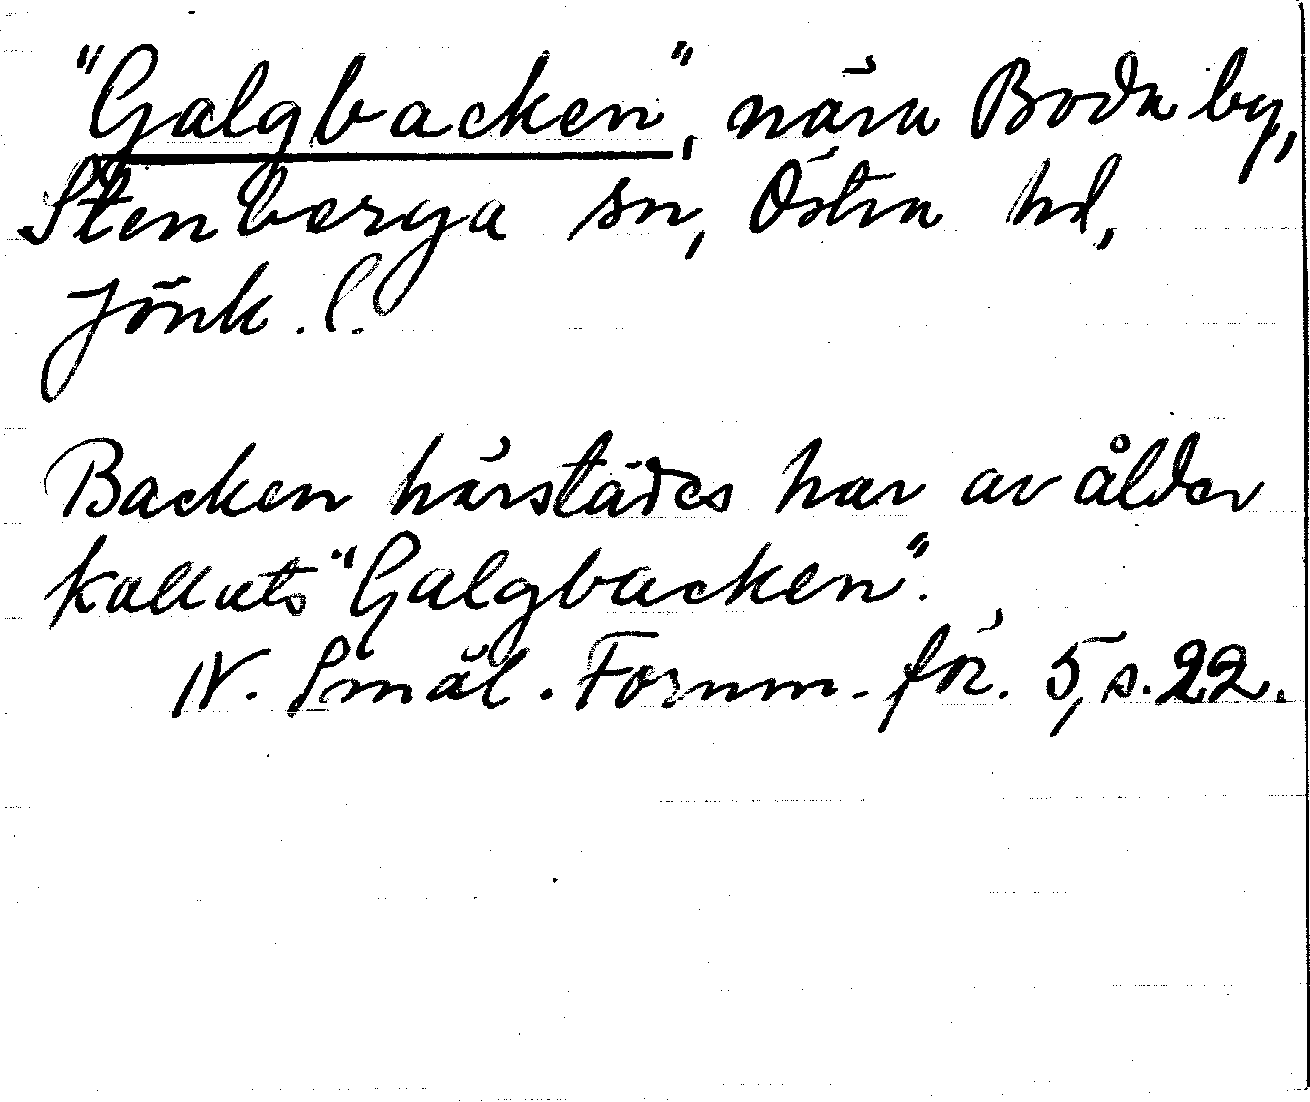 "Galgbacken", nära Boda by,
Stenberga sn, Östra hd,
Jönk. l.
Backen härstädes har av ålder
kallats "Galgbacken".
N. Smål. Fornm. för. 5, s. 22.